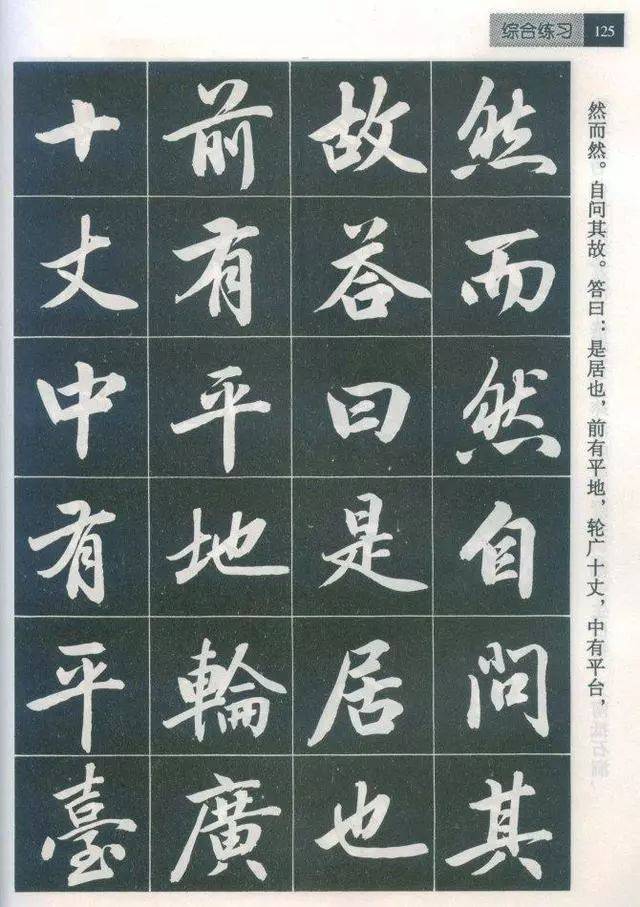 综合练习 125
然而然自问其
故答曰是居也
前有平地輪廣
十丈中有平臺
然而然。自问其故。答曰：是居也，前有平地，轮广十丈，中有平台，